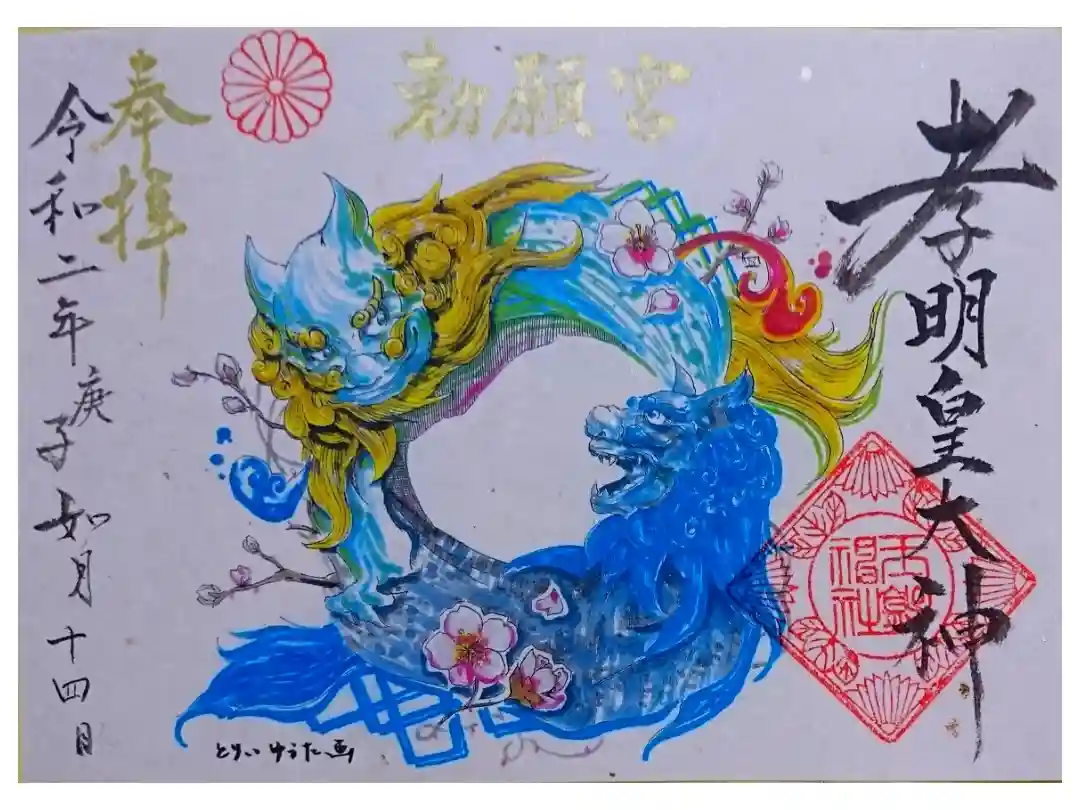 勅願宮
孝明皇大神
玉鉾神社
奉拝
令和二年庚子如月十四日
とりいゆうた画